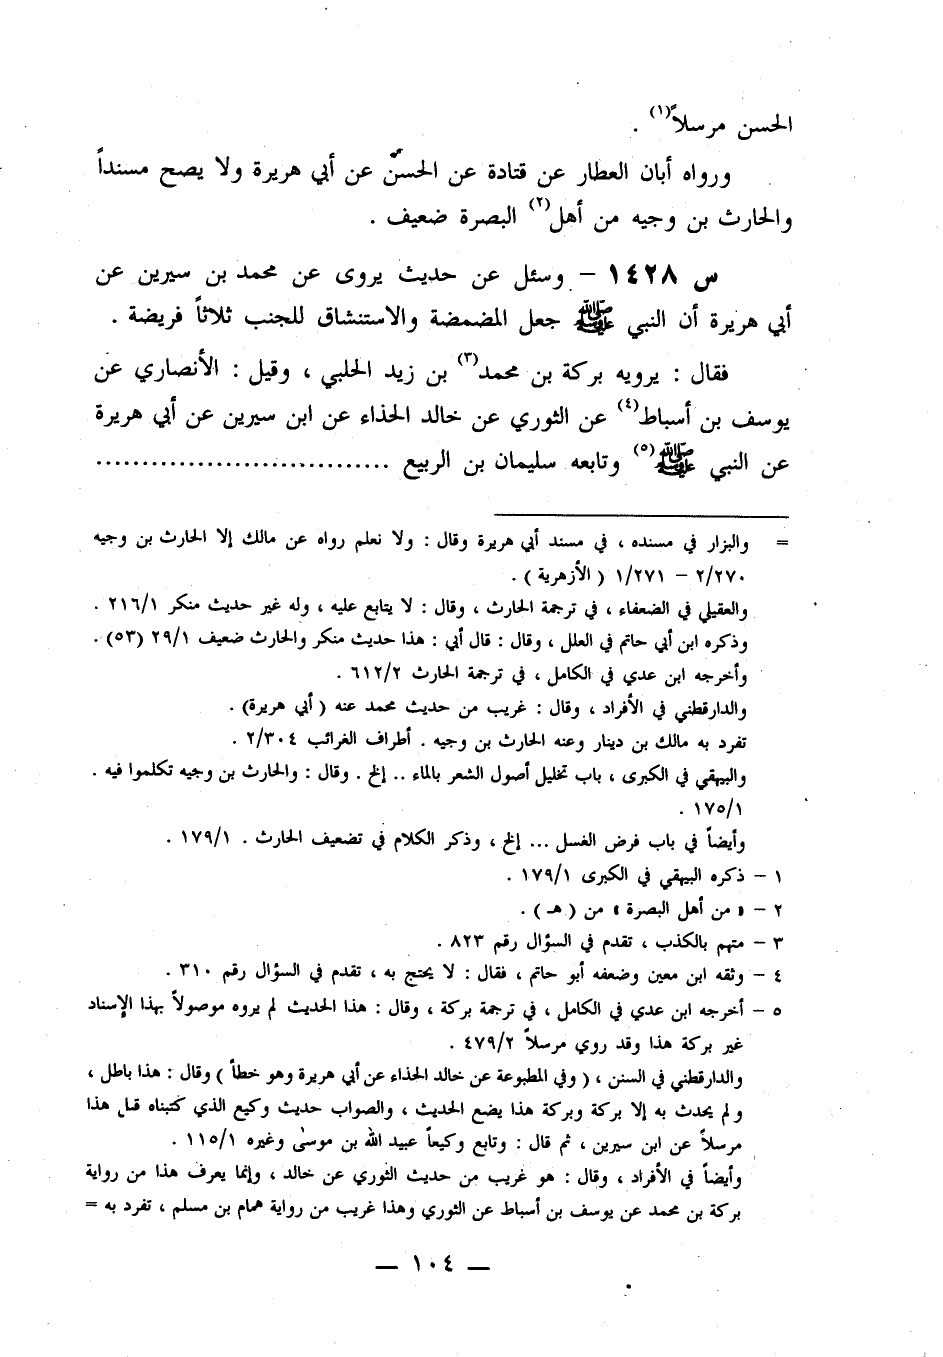 الحسن مرسلاً(١) .
ورواه أبان العطار عن قتادة عن الحسن عن أبي هريرة ولا يصح مسنداً
والحارث بن وجيه من أهل(٢) البصرة ضعيف .
س ١٤٢٨ – وسئل عن حديث يروى عن محمد بن سيرين عن
أبي هريرة أن النبي ﷺ جعل المضمضة والاستنشاق للجنب ثلاثاً فريضة .
فقال : يرويه بركة بن محمد(٣) بن زيد الحلبي ، وقيل : الأنصاري عن
يوسف بن أسباط(٤) عن الثوري عن خالد الحذاء عن ابن سيرين عن أبي هريرة
عن النبي ﷺ(٥) وتابعه سليمان بن الربيع ................................
= والبزار في مسنده ، في مسند أبي هريرة وقال : ولا نعلم رواه عن مالك إلا الحارث بن وجيه
٢/٢٧٠ – ١/٢٧١ ( الأزهرية ) .
والعقيلي في الضعفاء ، في ترجمة الحارث ، وقال : لا يتابع عليه ، وله غير حديث منكر ٢١٦/١ .
وذكره ابن أبي حاتم في العلل ، وقال : قال أبي : هذا حديث منكر والحارث ضعيف ٢٩/١ (٥٣) .
وأخرجه ابن عدي في الكامل ، في ترجمة الحارث ٦١٢/٢ .
والدارقطني في الأفراد ، وقال : غريب من حديث محمد عنه ( أبي هريرة) .
تفرد به مالك بن دينار وعنه الحارث بن وجيه . أطراف الغرائب ٢/٣٠٤ .
والبيهقي في الكبرى ، باب تخليل أصول الشعر بالماء .. إلخ . وقال : والحارث بن وجيه تكلموا فيه .
١٧٥/١ .
وأيضاً في باب فرض الغسل ... إلخ ، وذكر الكلام في تضعيف الحارث . ١٧٩/١ .
١ – ذكره البيهقي في الكبرى ١٧٩/١ .
٢ – « من أهل البصرة » من ( هـ ) .
٣ – متهم بالكذب ، تقدم في السؤال رقم ٨٢٣ .
٤ – وثقه ابن معين وضعفه أبو حاتم ، فقال : لا يحتج به ، تقدم في السؤال رقم ٣١٠ .
٥ – أخرجه ابن عدي في الكامل ، في ترجمة بركة ، وقال : هذا الحديث لم يروه موصولاً بهذا الإسناد
غير بركة هذا وقد روي مرسلاً ٤٧٩/٢ .
والدارقطني في السنن ، ( وفي المطبوعة عن خالد الحذاء عن أبي هريرة وهو خطأ ) وقال : هذا باطل ،
ولم يحدث به إلا بركة وبركة هذا يضع الحديث ، والصواب حديث وكيع الذي كتبناه قبل هذا
مرسلاً عن ابن سيرين ، ثم قال : وتابع وكيعاً عبيد الله بن موسى وغيره ١١٥/١ .
وأيضاً في الأفراد ، وقال : هو غريب من حديث الثوري عن خالد ، وإنما يعرف هذا من رواية
بركة بن محمد عن يوسف بن أسباط عن الثوري وهذا غريب من رواية همام بن مسلم ، تفرد به =
— ١٠٤ —